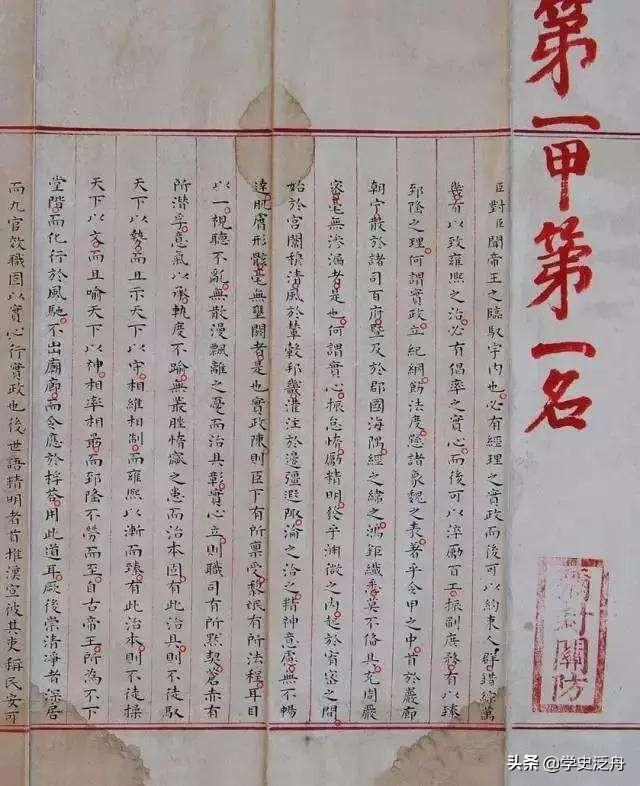 第一甲第一名
彌封關防
臣對臣聞帝王之臨馭宇內也必有經理之實政而後可以約束人群錯綜萬
幾有以致雍熙之治必有倡率之實心而後可以淬勵百工振刷庶務有以臻
郅隆之理何謂實政立紀綱飭法度懸諸象魏之表著乎令甲之中首於巖廊
朝宁散於諸司百府暨及於郡國海隅經之緯之鴻鉅纖悉莫不備具充周嚴
密毫無滲漏者是也何謂實心振怠惰勵精明發乎淵微之內起於宥密之間
始於宮闈穆清風於輦轂邦畿灌注於邊疆遐陬淪之洽之精神意慮無不暢
達肌膚形骸毫無壅閼者是也實政陳則臣下有所稟受黎氓有所法程耳目
以一視聽不亂無散漫飄離之憂而治具彰實心立則職司有所默契蒼赤有
所潛孚意氣以承軌度不踰無叢脞惰窳之患而治本固有此治具則不徒馭
天下以勢而且示天下以守相維相制而雍熙以漸而臻有此治本則不徒操
天下以文而且喻天下以神相率相勗而郅隆不勞而至自古帝王所為不下
堂階而化行於風馳不出廟廊而令應於桴答用此道耳厥後崇清淨者深居
而九官效職固以實心行實政也後世語精明者首推漢宣彼其吏稱民安可
头条 @学史泛舟